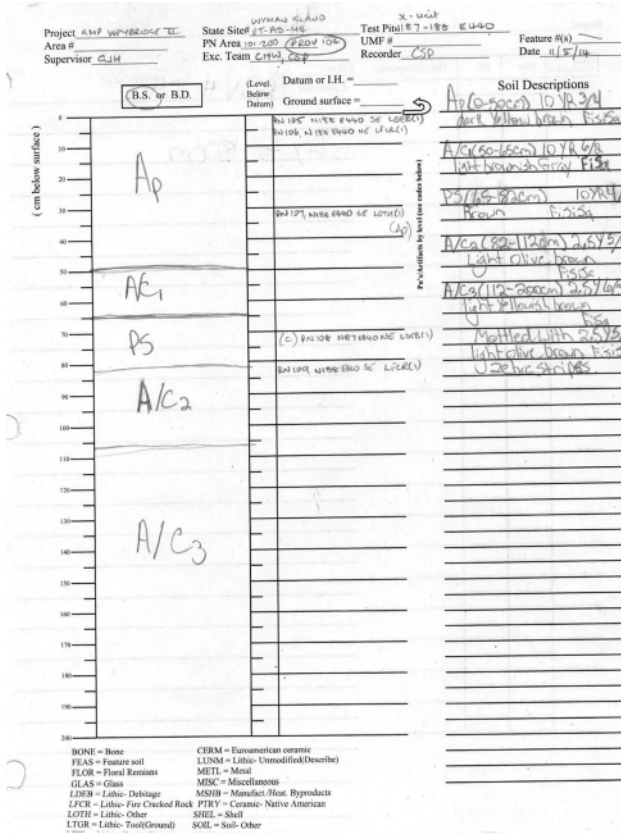 WYMAN ISLAND X-unit
Project GMP WEYBRIDGE II State Site# VT-AD-44 Test Pit N187-188 E440
Area # PN Area 101-200 (PROV 104) UMF # Feature #(s) —
Supervisor GJH Exc. Team CHW, CSP Recorder CSP Date 11/5/14
B.S. or B.D.
(Level Below Datum)
Datum or I.H. =
Ground surface =
Soil Descriptions
( cm below surface )
Pn's/Artifacts by level (use codes below)
0
10
20
30
40
50
60
70
80
90
100
110
120
130
140
150
160
170
180
190
200
Ap
A/C1
PS
A/C2
A/C3
PN 105 N188 E440 SE LDEB(1)
PN 106, N188 E440 NE LFCR(1)
PN 107, N188 E440 SE LOTH(1)
(Ap)
(C) PN 108 N187 E440 NE LDEB(1)
PN 109 N188 E440 SE LFCR(1)
Ap (0-50cm) 10 YR 3/4
dark yellow brown FiSiSa
A/C1 (50-65cm) 10 YR 6/2
light brownish Gray FiSa
PS (65-82cm) 10YR4/
Brown FiSiSa
A/C2 (82-112cm) 2.5Y5/
Light Olive brown
FiSiSa
A/C3 (112-200cm) 2.5Y6/
light Yellowish brown
FiSa
Mottled with 2.5Y5
light olive brown FiSi
Zebra stripes
BONE = Bone
FEAS = Feature soil
FLOR = Floral Remians
GLAS = Glass
LDEB = Lithic- Debitage
LFCR = Lithic- Fire Cracked Rock
LOTH = Lithic- Other
LTGR = Lithic- Tool(Ground)
CERM = Euroamerican ceramic
LUNM = Lithic- Unmodified(Describe)
METL = Metal
MISC = Miscellaneous
MSHB = Manufact./Heat. Byproducts
PTRY = Ceramic- Native American
SHEL = Shell
SOIL = Soil- Other